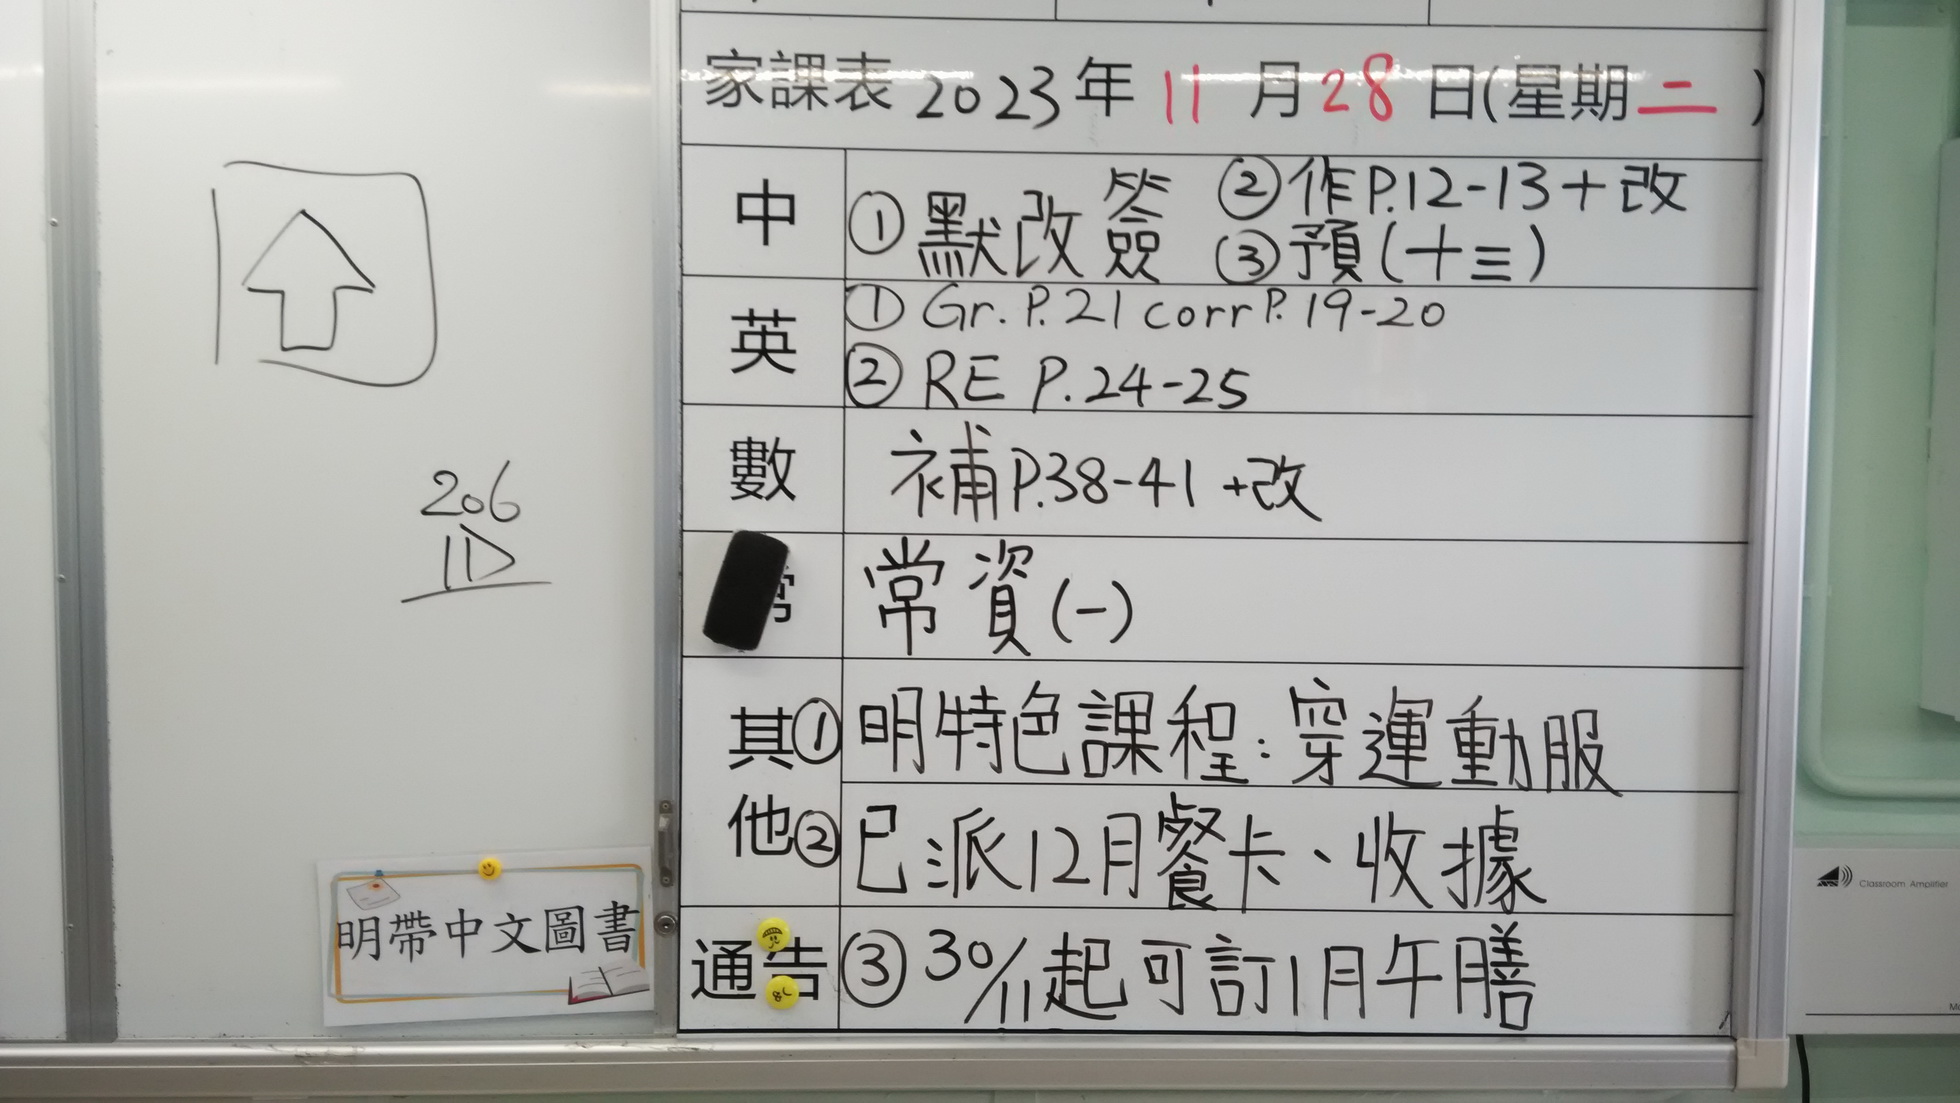 家課表 2023年 11月28日(星期二)
中 ①默改簽 ②作P.12-13+改
③預(十三)
英 ① Gr. P.21 corr P.19-20
② RE P.24-25
數 補P.38-41 +改
常資(一)
其他 ①明特色課程:穿運動服
②已派12月餐卡、收據
通告 ③30/11起可訂1月午膳
206
1D
明帶中文圖書
Classroom Amplifier